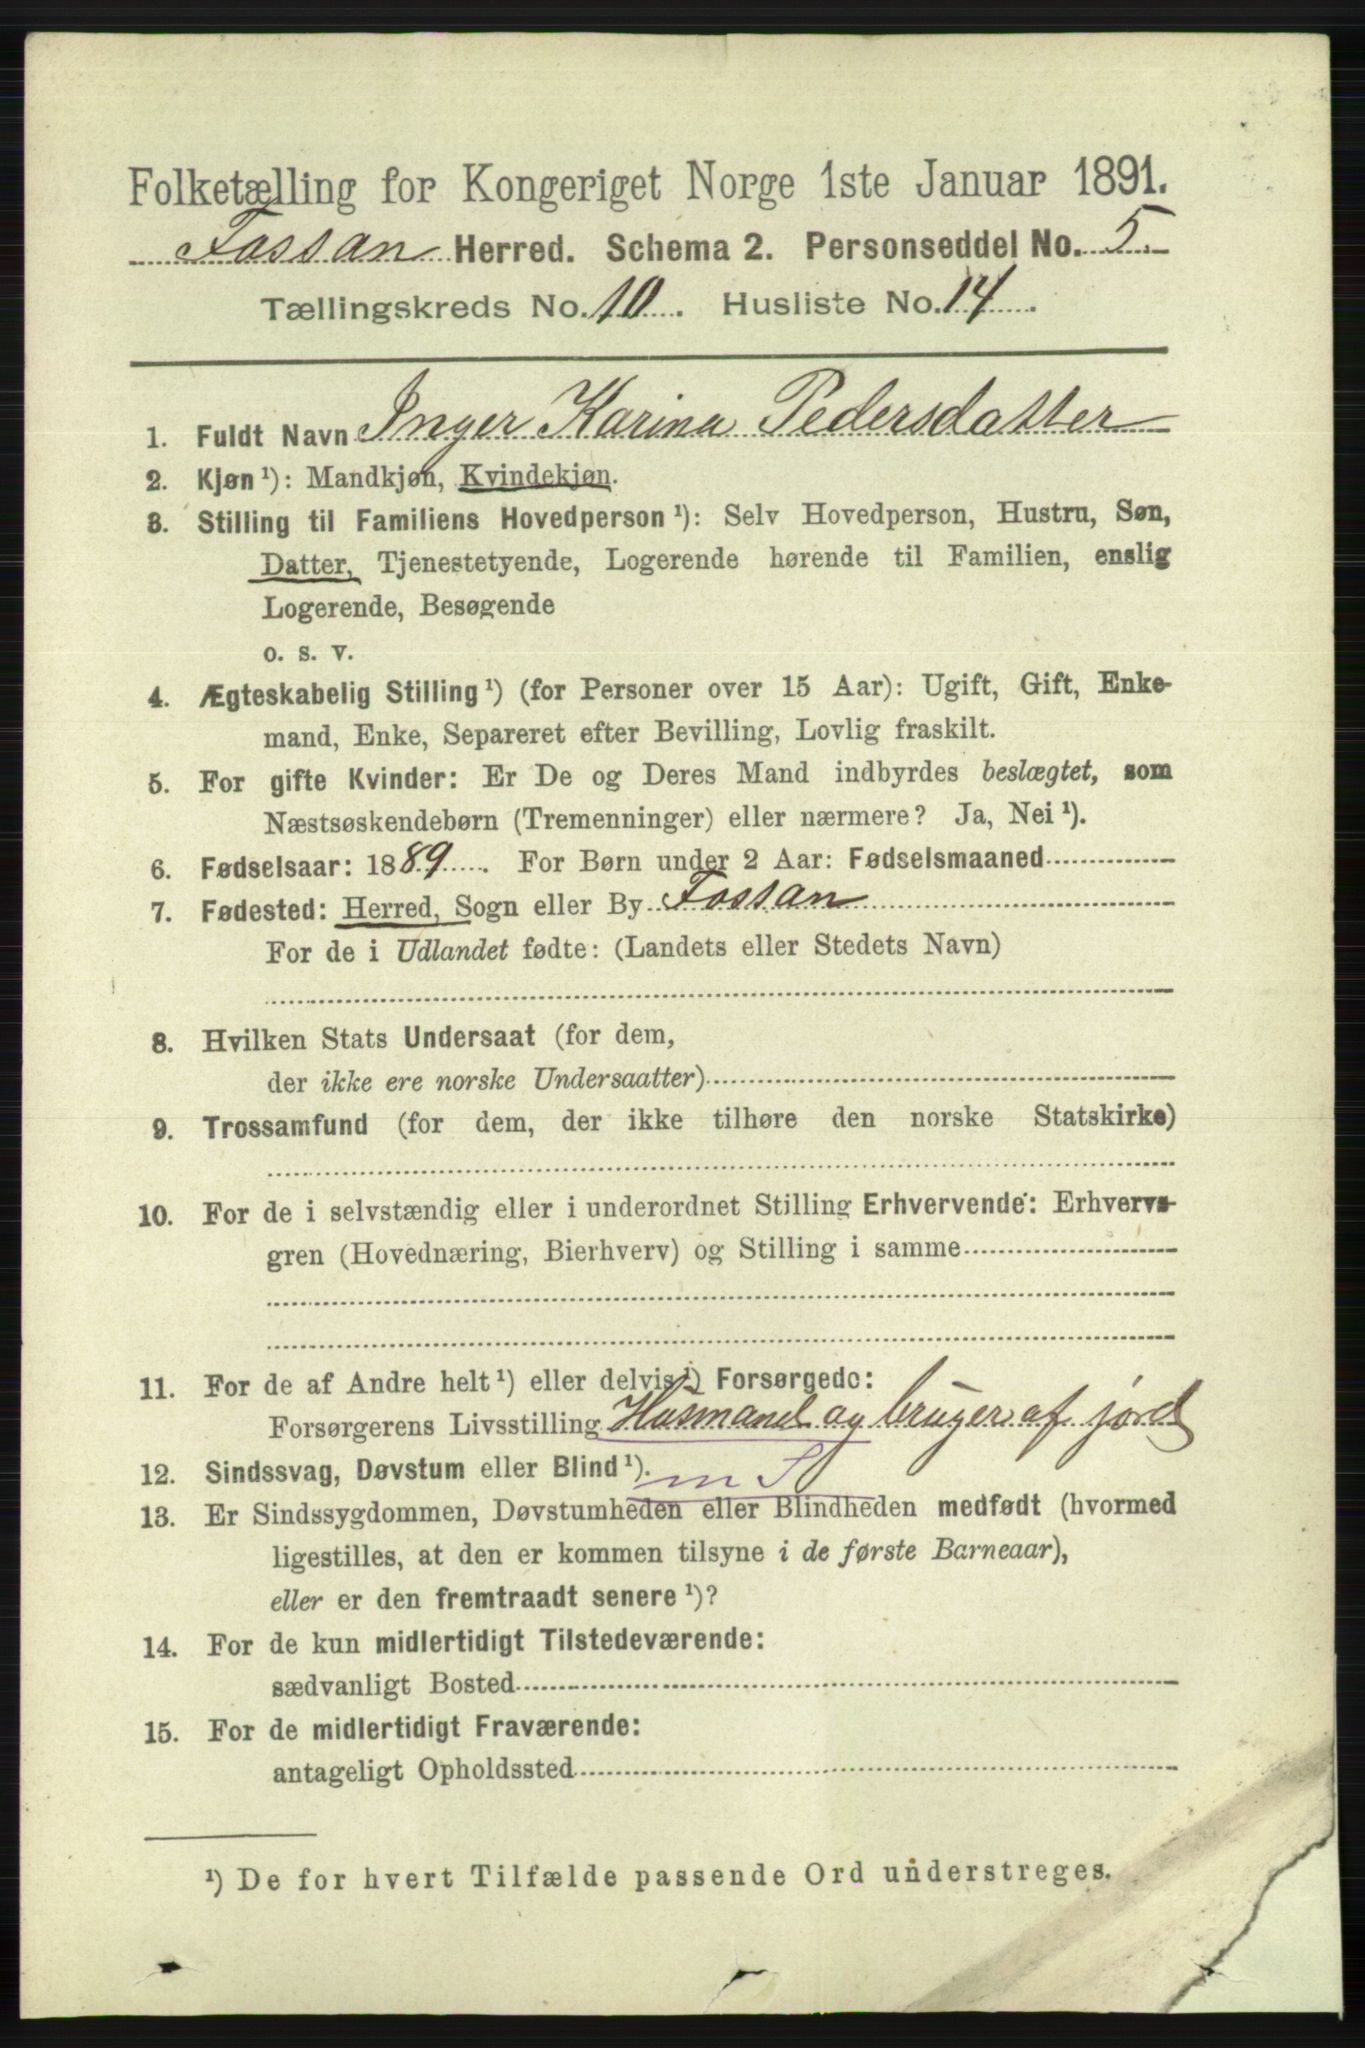 Folketælling for Kongeriget Norge 1ste Januar 1891.
Fossan Herred. Schema 2. Personseddel No. 5.
Tællingskreds No. 10. Husliste No. 14.
1. Fuldt Navn Inger Karina Pedersdatter
2. Kjøn ¹): Mandkjøn, Kvindekjøn.
3. Stilling til Familiens Hovedperson ¹): Selv Hovedperson, Hustru, Søn,
Datter, Tjenestetyende, Logerende hørende til Familien, enslig
Logerende, Besøgende
o. s. v.
4. Ægteskabelig Stilling ¹) (for Personer over 15 Aar): Ugift, Gift, Enke-
mand, Enke, Separeret efter Bevilling, Lovlig fraskilt.
5. For gifte Kvinder: Er De og Deres Mand indbyrdes beslægtet, som
Næstsøskendebørn (Tremenninger) eller nærmere? Ja, Nei ¹).
6. Fødselsaar: 1889. For Børn under 2 Aar: Fødselsmaaned
7. Fødested: Herred, Sogn eller By Fossan
For de i Udlandet fødte: (Landets eller Stedets Navn)
8. Hvilken Stats Undersaat (for dem,
der ikke ere norske Undersaatter)
9. Trossamfund (for dem, der ikke tilhøre den norske Statskirke)
10. For de i selvstændig eller i underordnet Stilling Erhvervende: Erhvervs-
gren (Hovednæring, Bierhverv) og Stilling i samme
11. For de af Andre helt ¹) eller delvis ¹) Forsørgede:
Forsørgerens Livsstilling Husmand og bruger af jord
12. Sindssvag, Døvstum eller Blind ¹). m S
13. Er Sindssygdommen, Døvstumheden eller Blindheden medfødt (hvormed
ligestilles, at den er kommen tilsyne i de første Barneaar),
eller er den fremtraadt senere ¹)?
14. For de kun midlertidigt Tilstedeværende:
sædvanligt Bosted
15. For de midlertidigt Fraværende:
antageligt Opholdssted
¹) De for hvert Tilfælde passende Ord understreges.